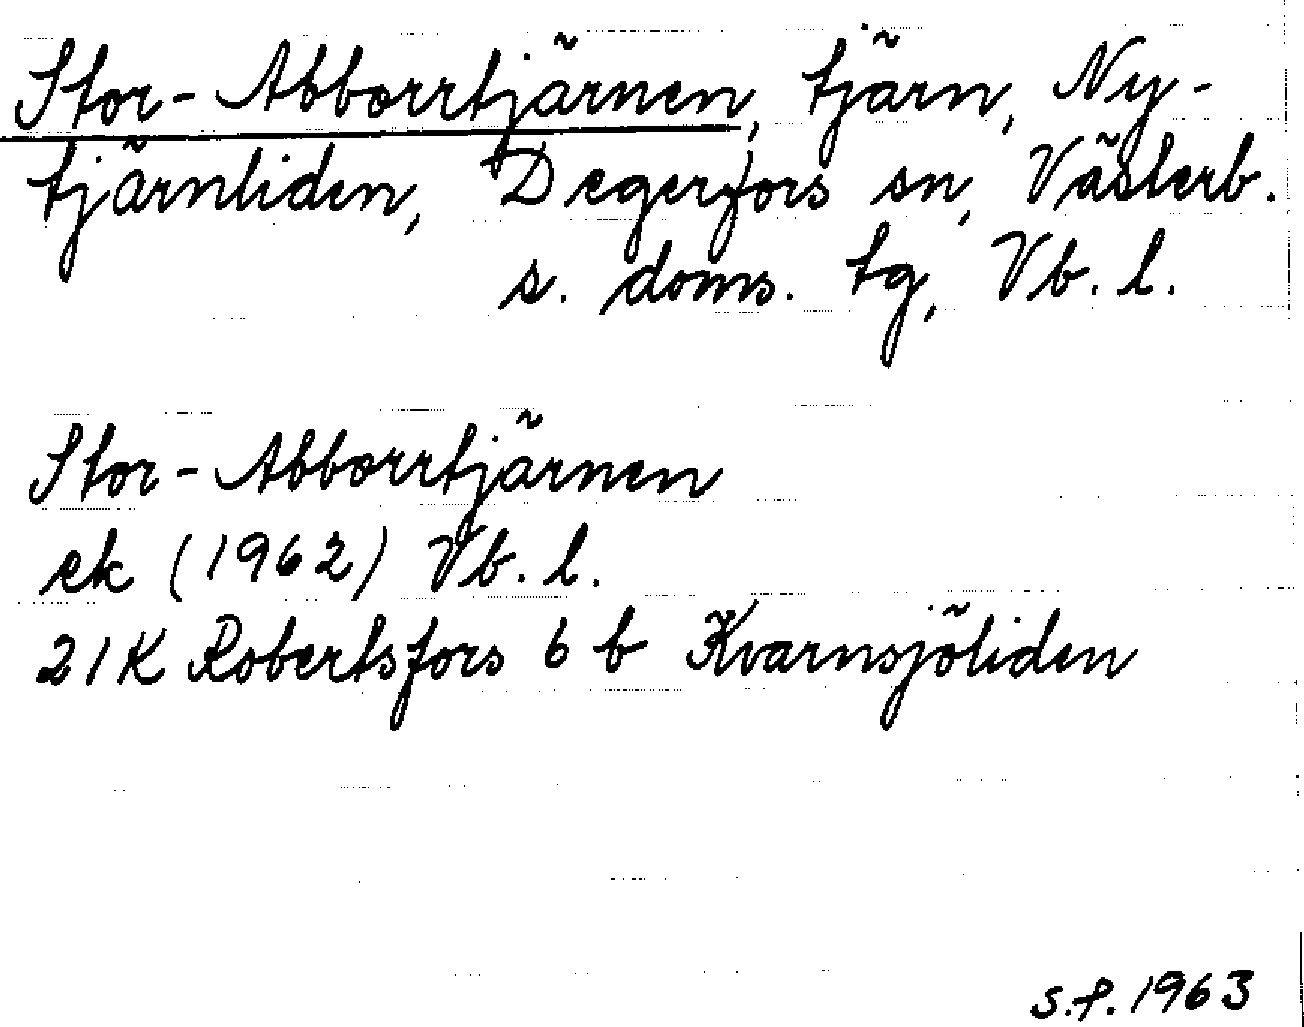 Stor-Abborrtjärnen, tjärn, Ny-
tjärnliden, Degerfors sn, Västerb.
s. doms. tg, Vb. l.
Stor-Abborrtjärnen
ek (1962) Vb. l.
21K Robertsfors 6 b Kvarnsjöliden
S.f. 1963